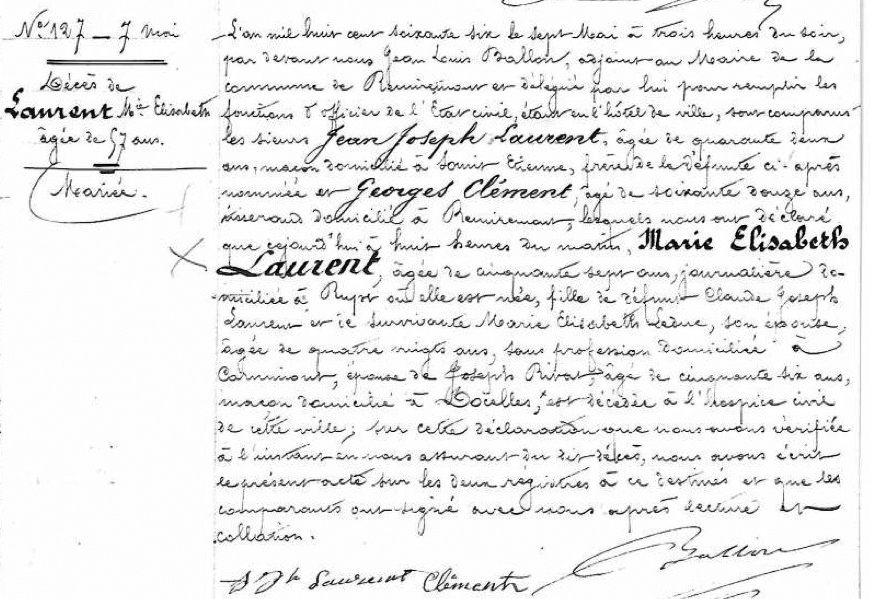 N° 127 — 7 Mai
Décès de
Laurent Mie Elisabeth
âgée de 57 ans.
Mariée.
L'an mil huit cent soixante six le sept Mai à trois heures du soir,
par devant nous Jean Louis Ballon, adjoint au Maire de la
commune de Remiremont et délégué par lui pour remplir les
fonctions d'officier de l'Etat civil, étant en l'hôtel de ville, sont comparus
les sieurs Jean Joseph Laurent, âgée de quarante deux
ans, maçon domicilié à Saint Etienne, frère de la défunte ci-après
nommée et Georges Clément, âgé de soixante douze ans,
tisserand domicilié à Remiremont, lesquels nous ont déclaré
que cejourd'hui à huit heures du matin, Marie Elisabeth
Laurent, âgée de cinquante sept ans, journalière do-
miciliée à Rupt où elle est née, fille de défunt Claude Joseph
Laurent et de survivante Marie Elisabeth Leduc, son épouse,
âgée de quatre vingts ans, sans profession domiciliée à
épouse de Joseph Rivat, âgé de cinquante six ans,
maçon domicilié à est décédée à l'hospice civil
de cette ville; sur cette déclaration que nous avons vérifiée
à l'instant en nous assurant du dit décès, nous avons écrit
le présent acte sur les deux registres à ce destinés et que les
comparants ont signé avec nous après lecture et
collation.
Ballon
Laurent Clément